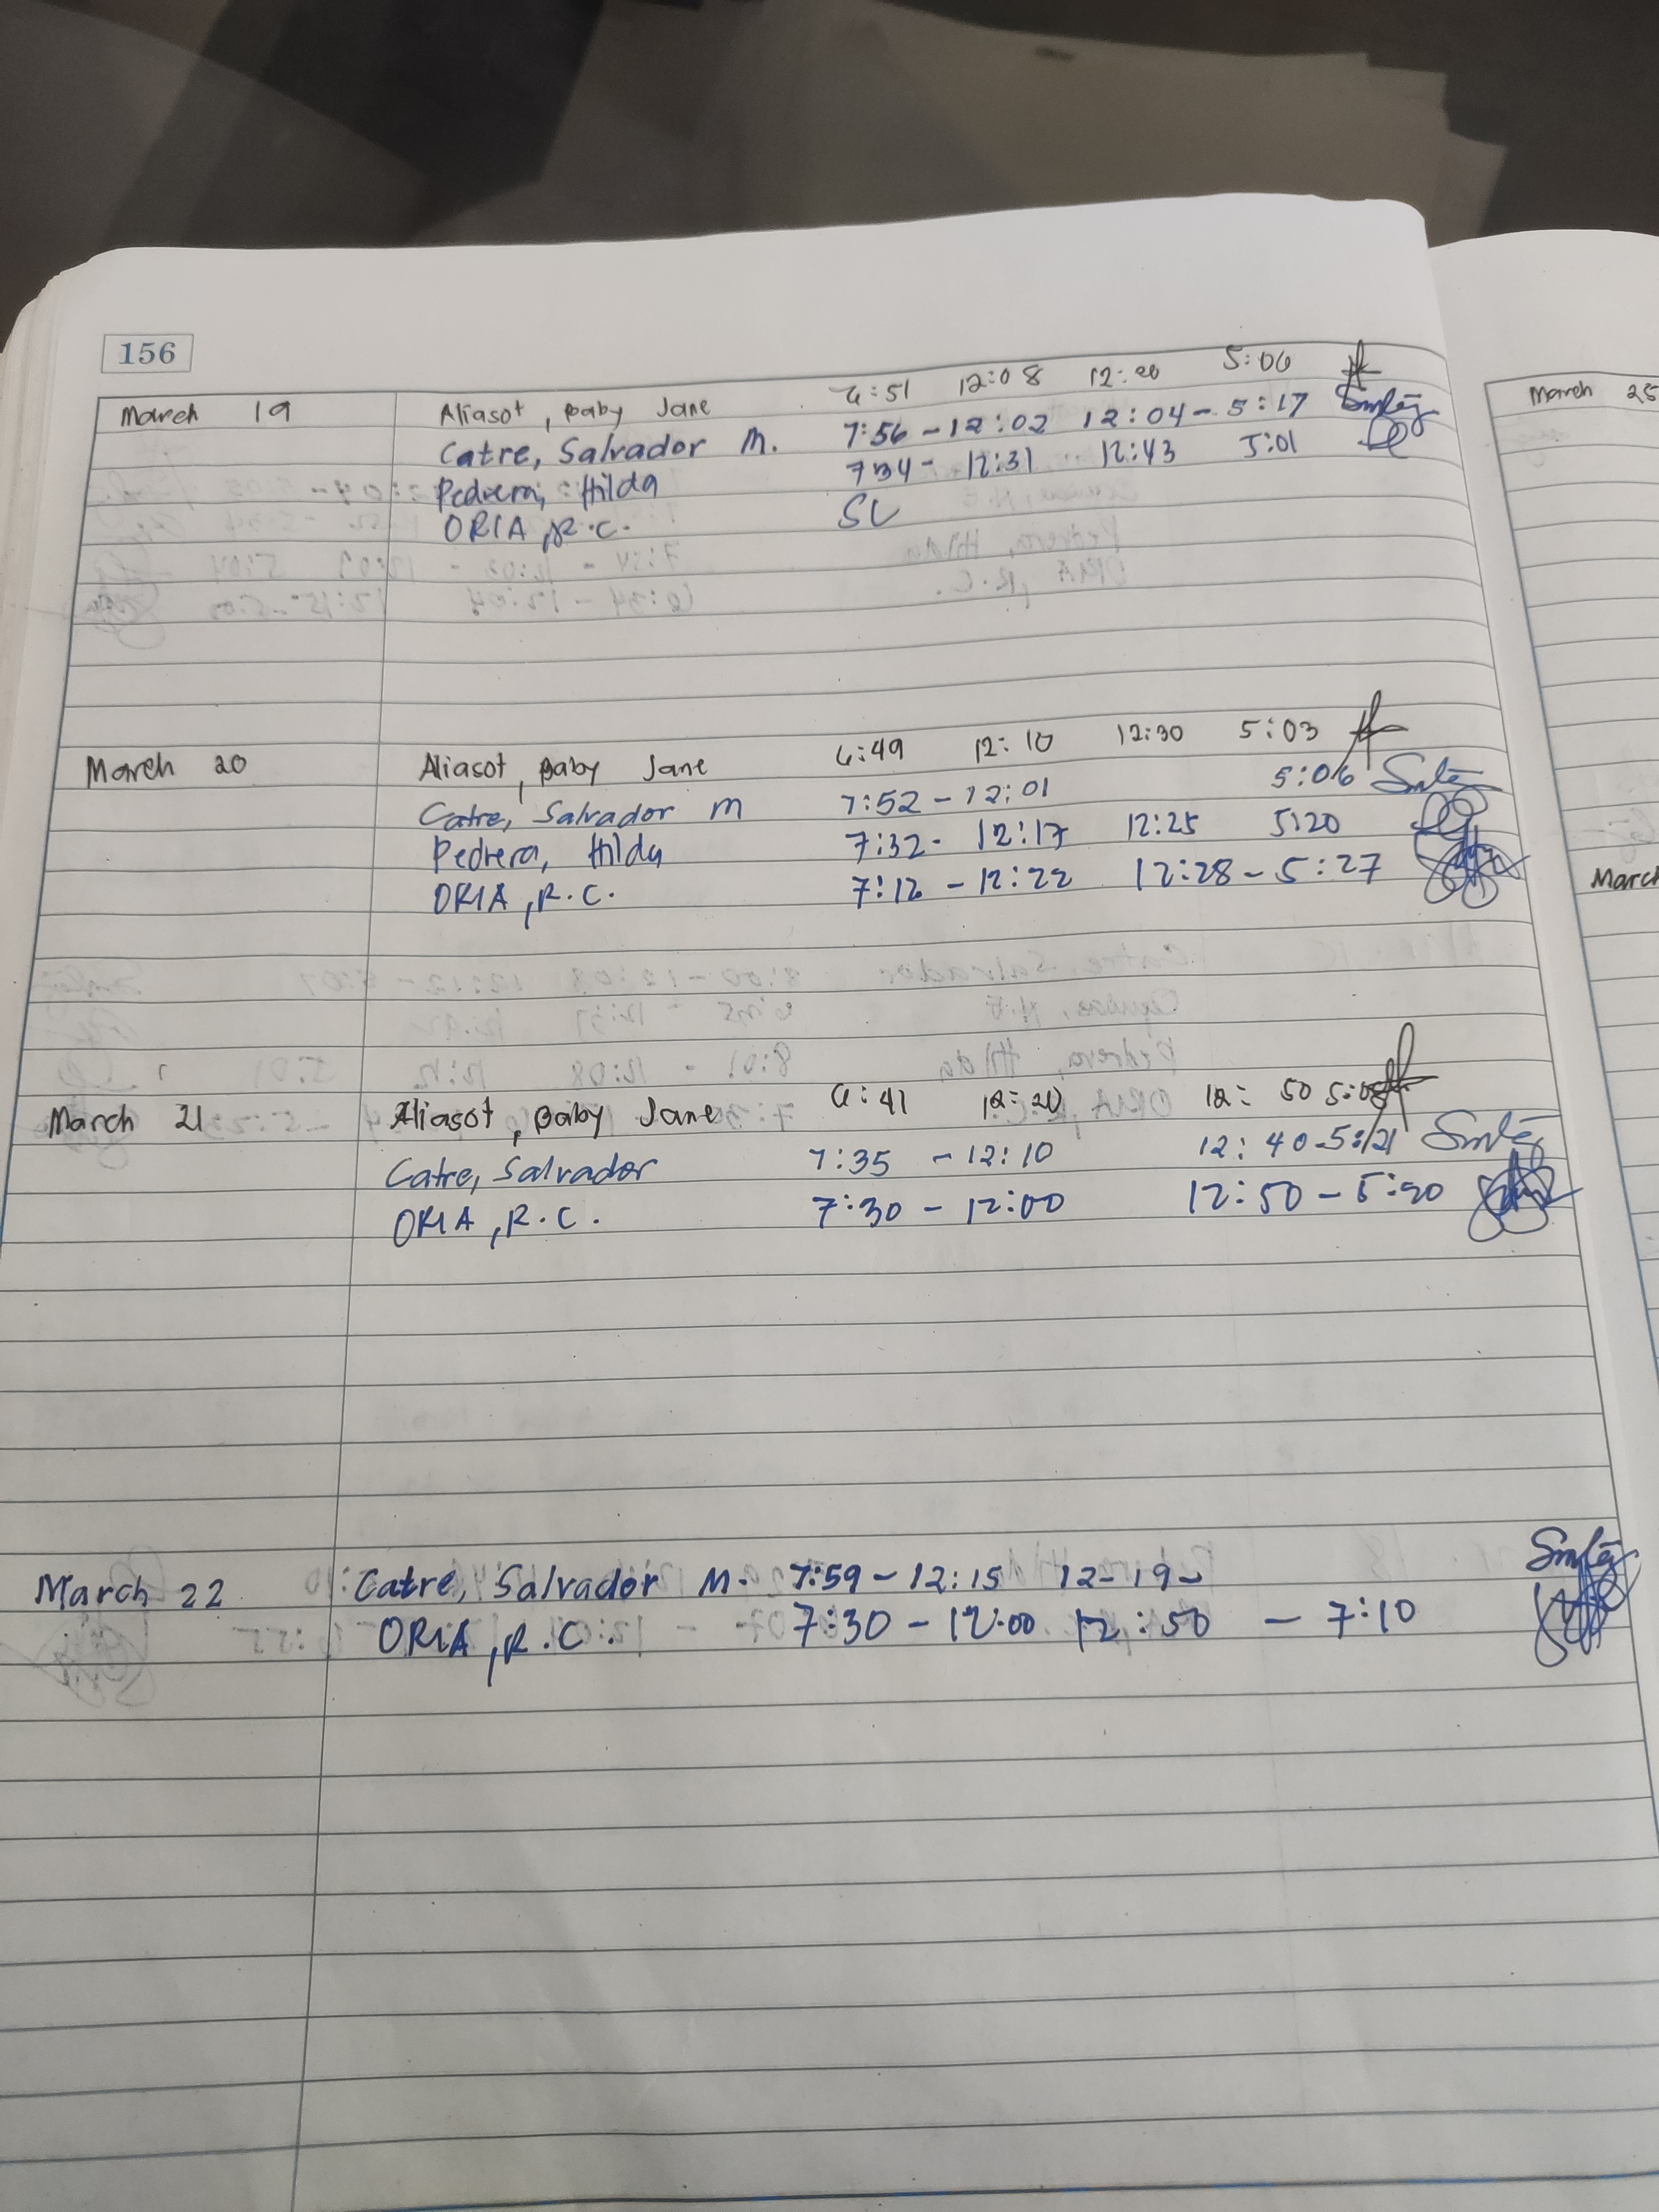 156
March 19 Aliasot, Baby Jane 6:51 12:08 12:20 5:06
Catre, Salvador M. 7:56 - 12:02 12:04 - 5:17
Pedrera, Hilda 7:34 - 12:31 12:43 5:01
ORIA, R.C. SL
March 20 Aliasot, Baby Jane 6:49 12:10 12:30 5:03
Catre, Salvador M 7:52 - 12:01 5:06
Pedrera, Hilda 7:32 - 12:17 12:25 5:20
ORIA, R.C. 7:12 - 12:22 12:28 - 5:27
March 21 Aliasot, Baby Jane 6:41 12:20 12:50
Catre, Salvador 7:35 - 12:10 12:40 - 5:21
ORIA, R.C. 7:30 - 12:00 12:50 - 5:20
March 22 Catre, Salvador M. 7:59 - 12:15 12-19-
ORIA, R.C. 7:30 - 12:00 12:50 - 7:10
March 25
March